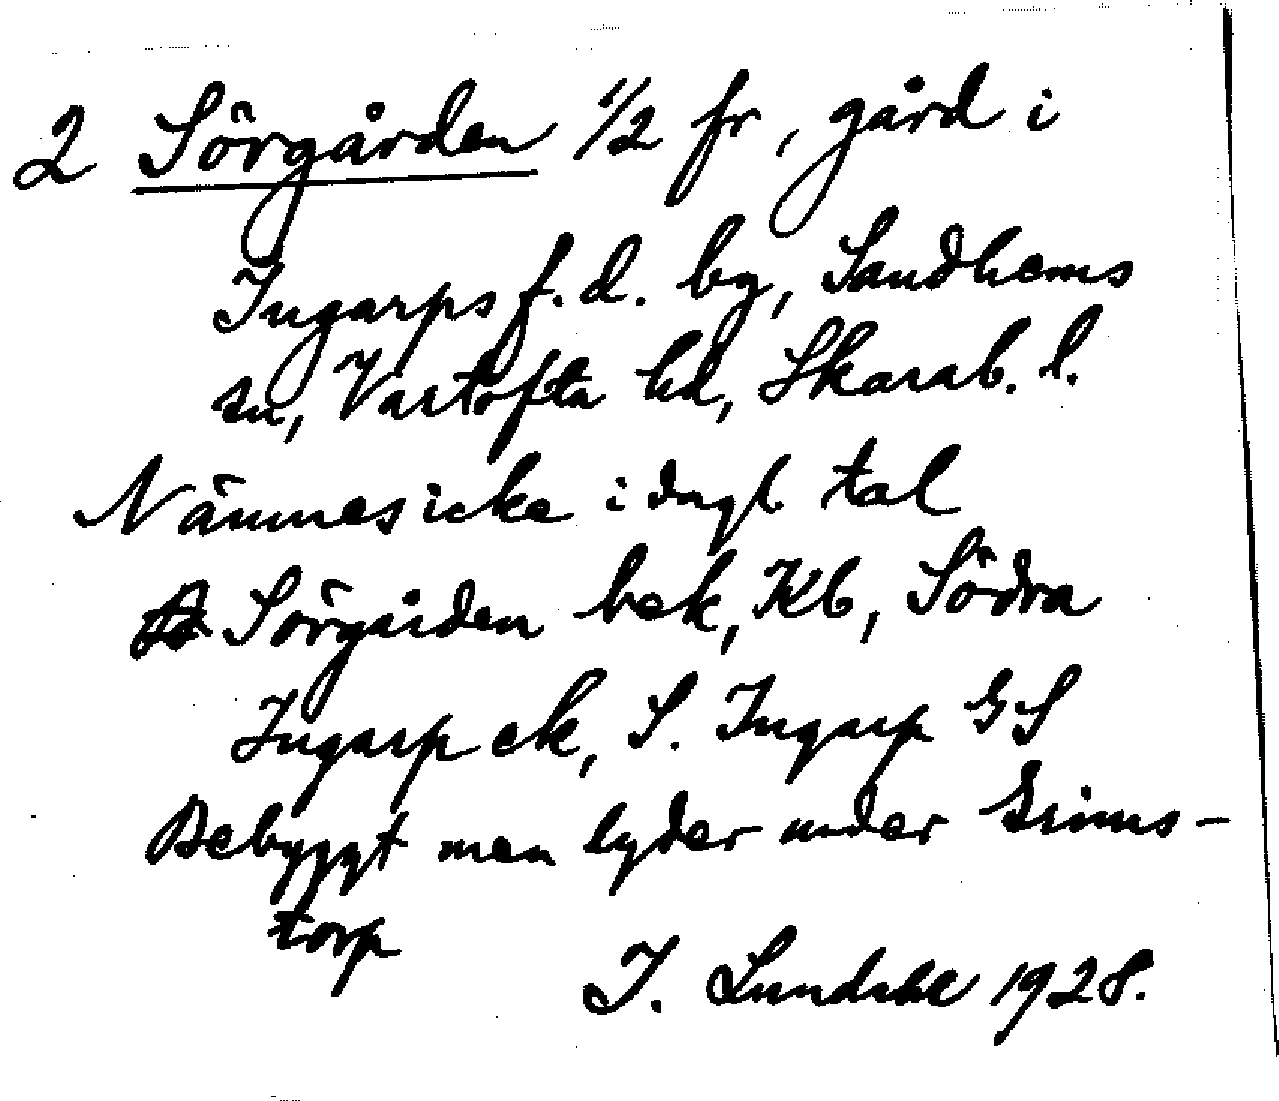 2 Sörgården 1/2 fr, gård i
Ingarps f. d. by, Sandhems
sn, Vartofta hd, Skarab. l.
Nämnes icke i dagl. tal
Sörgården bek, Kb, Södra
Ingarp ek, S. Ingarp GS
Bebyggt men lyder under Grims-
torp
J. Lundahl 1928.